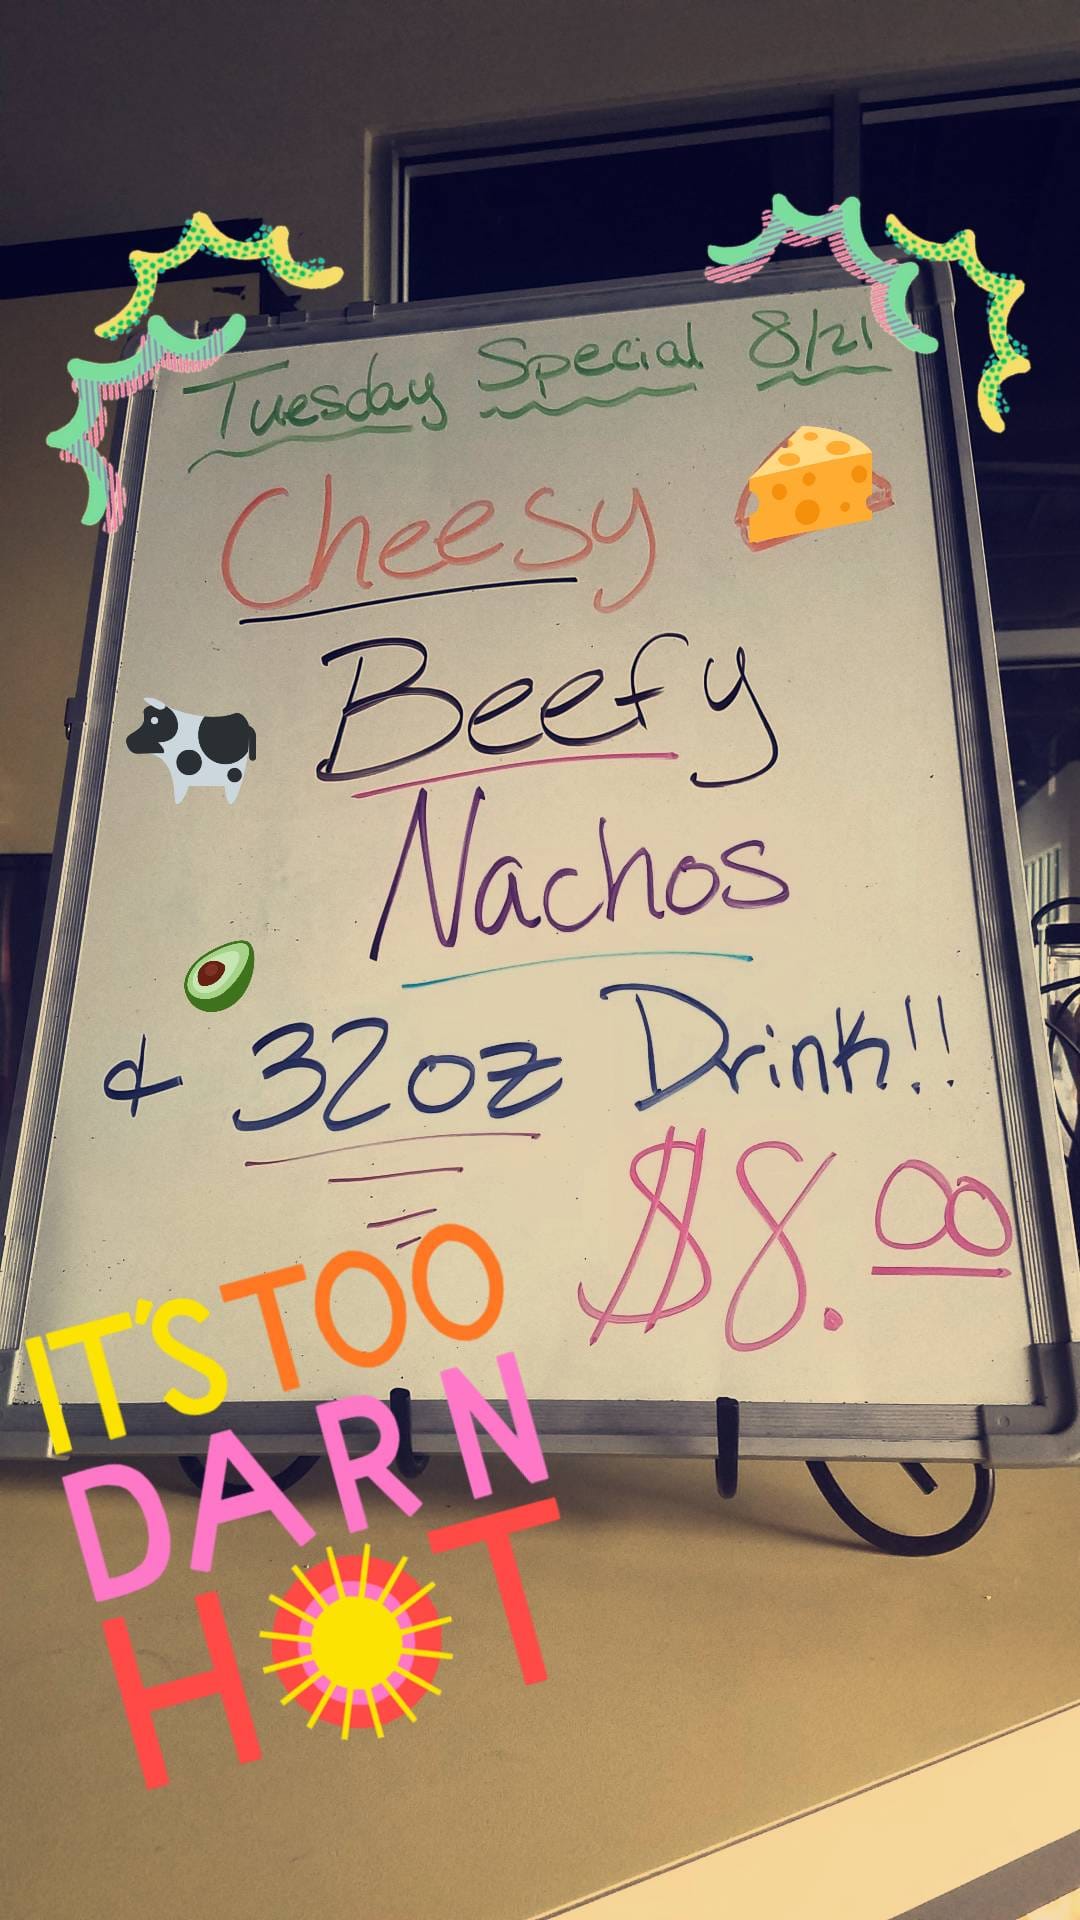 Tuesday Special 8/21
Cheesy
Beefy
Nachos
& 32oz Drink!!
$8.00
IT'S TOO
DARN
HOT